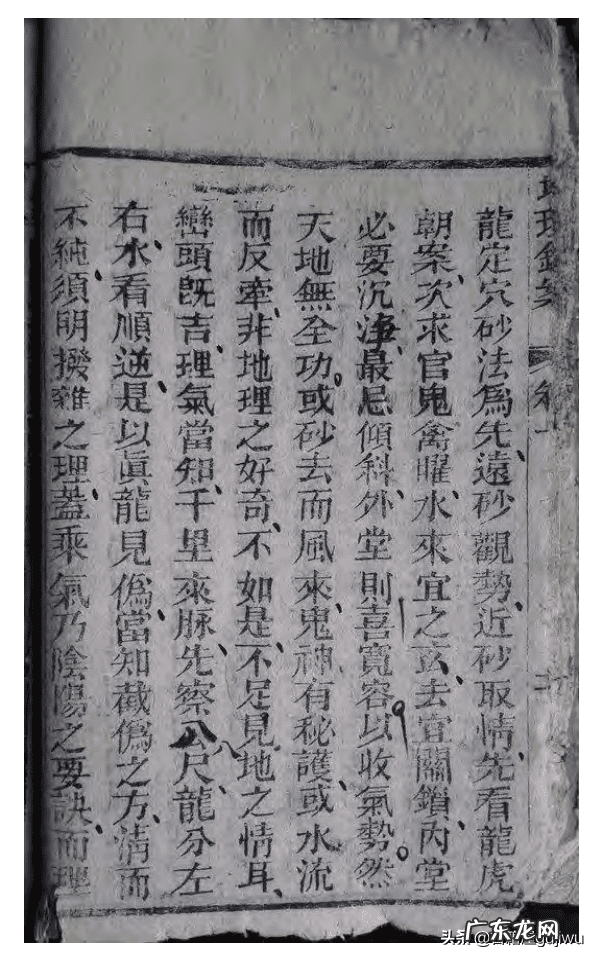 龍定穴砂法爲先、遠砂觀勢、近砂取情、先看龍虎
朝案、次求官鬼禽曜、水來宜之玄、去宜關鎖、内堂
必要沉海、最忌傾斜、外堂則喜寬容以收氣勢。然
天地無全功。或砂去而風來、鬼神有秘護、或水流
而反牽、非地理之好奇、不如是、不足見地之情耳、
巒頭既吉、理氣當知、千里來脉、先察尺、龍分左
右、水看順逆、是以眞龍見僞、當知截僞之方、清而
不純、須明撥雜之理、蓋乘氣乃陰陽之要訣、而理
广东龙网